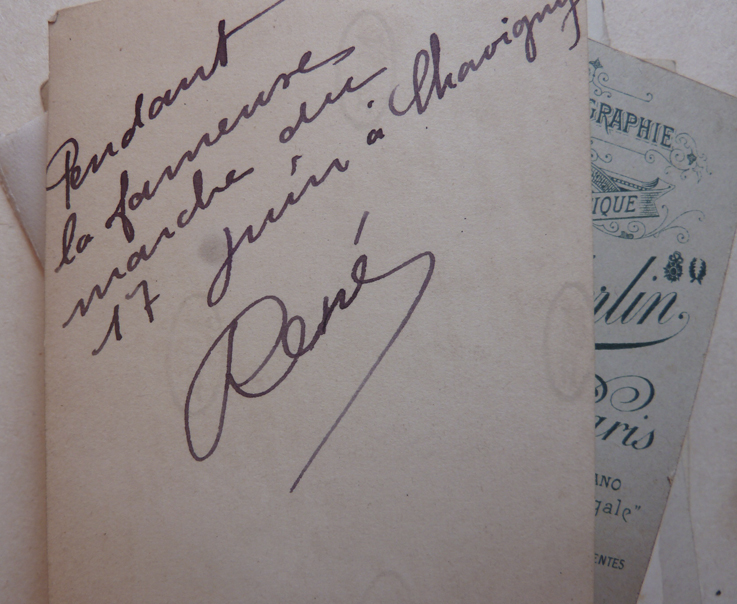 Pendant
la fameuse
marche du
17 juin à Chavigny
René
GRAPHIE
IQUE
rlin
aris
ANO
gale"
ENTES